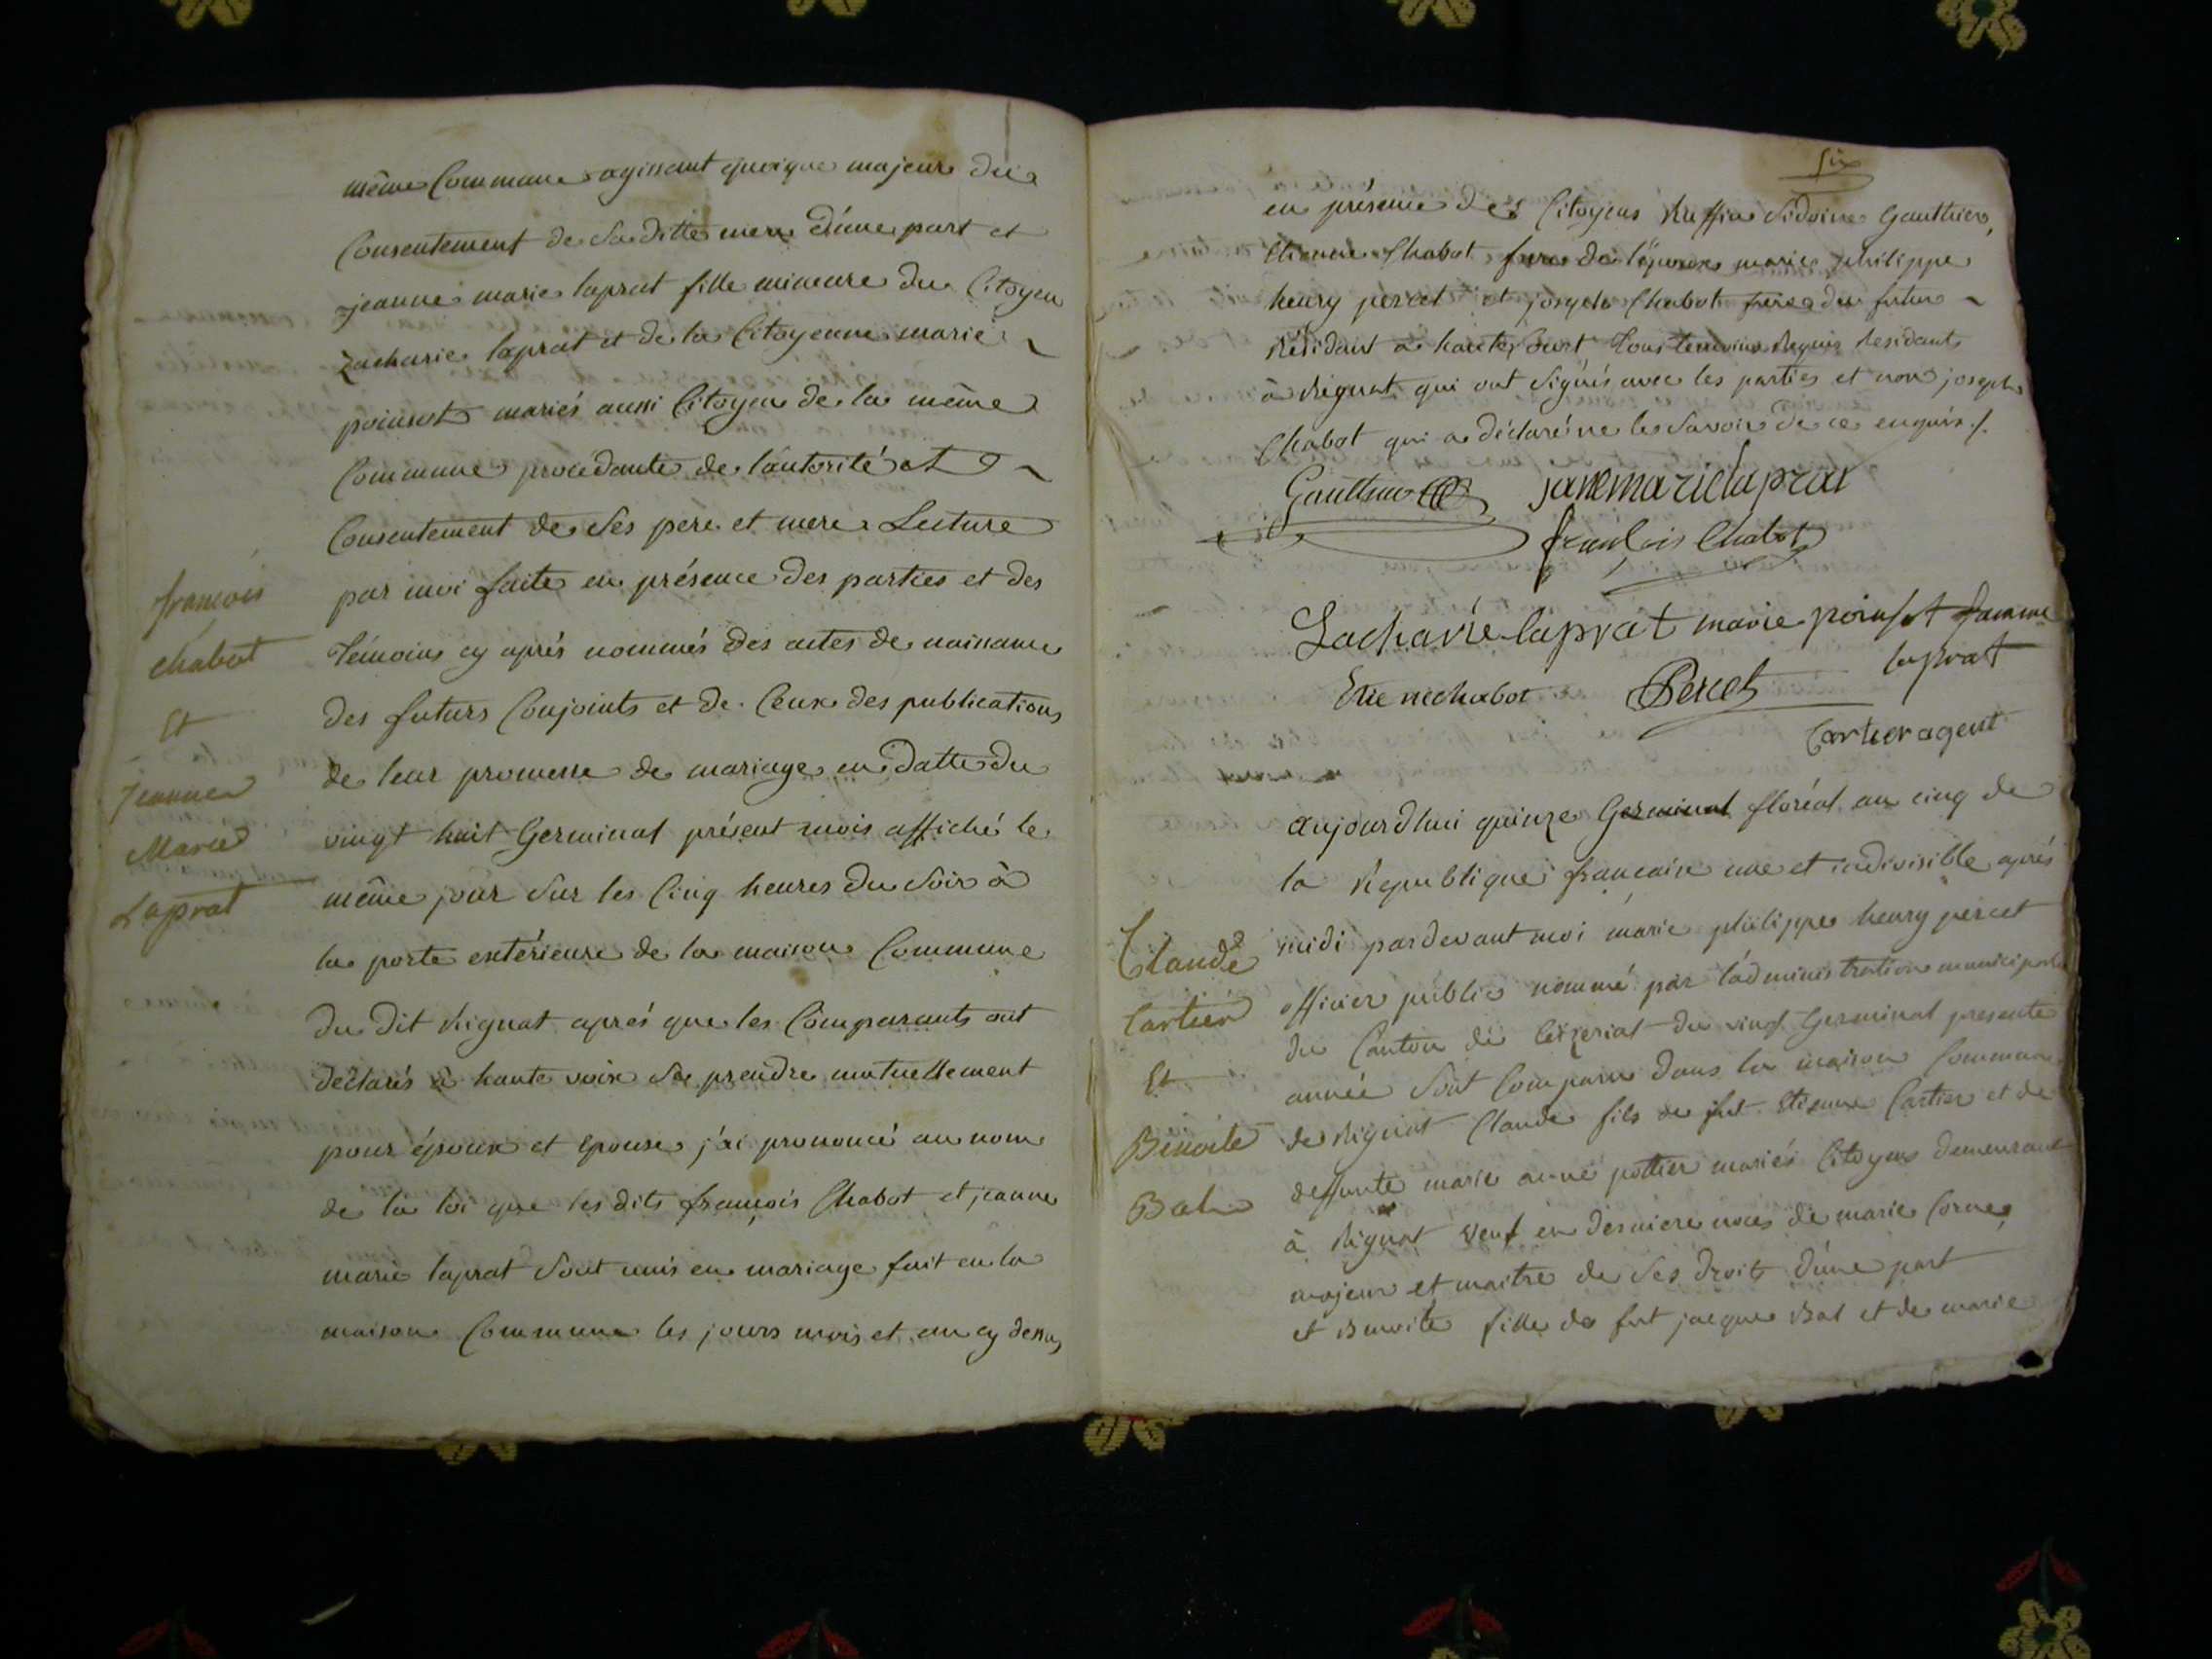 même Commune agissant quoique majeur du
Consentement de sa ditte mere d'une part et
jeanne marie laprat fille mineure du Citoyen
Zacharie laprat et de la Citoyenne marie
poinsot mariés aussi Citoyen de la même
Commune procedante de l'autorité et
Consentement de ses pere et mere Lecture
par moi faite en présence des parties et des
témoins cy aprés nommés des actes de naissance
des futurs Conjoints et de Ceux des publications
de leur promesse de mariage en datte du
vingt huit Germinal présent mois affiché le
même jour sur les Cinq heures du soir à
la porte extérieure de la maison Commune
du dit Rignat aprés que les Comparants ont
déclarés à haute voix se prendre mutuellement
pour époux et epouse j'ai prononcé au nom
de la loi que les dits françois Chabot et jeanne
marie laprat sont unis en mariage fait en la
maison Commune les jours mois et an cy dessus
françois
chabot
Et
Jeanne
Marie
Laprat
six
en présence des Citoyens Ruffin Sidoine Gauthier,
Etienne Chabot marie philippe
henry percet et joseph Chabot frere du futur
résidant à hautecourt tous temoins Requis Residants
à Rignat qui ont signés avec les parties et non joseph
Chabot qui a déclaré ne le savoir de ce enquis ./.
Gauthier janemarielaprat
françois Chabot
Zacharie laprat marie poinsot famme
laprat
Etienechabot Percet
Cartier agent
aujourdhui quinze Germinal floréal an cinq de
la Republique francaise une et indivisible aprés
midi pardevant moi marie philippe henry percet
officier public nommé par l'administration municipale
du Canton de Ceyzeriat du vingt Germinal presente
année sont Comparu dans la maison Commune
de Rignat Claude fils de fut Etienne Cartier et de
deffunte marie anne pottier mariés Citoyens demeurant
à Rignat veuf en derniere noces de marie Corne
majeur et maitre de ses droits d'une part
et Benoite fille de fut jacque Bal et de marie
Claude
Cartier
Et
Benoite
Bal